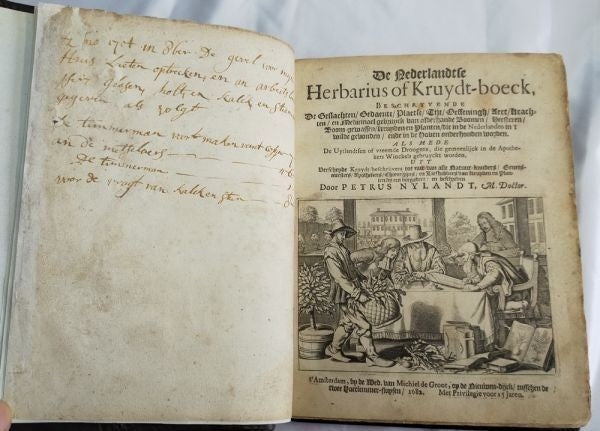 1704 in 8ber De gevel voor mijn
Huis Laten optrecken, en an arbeits
gegeven als volgt
de timmerman voort maken
an de metselaers
De timmerman
voor de vragt van kalk en sten
De Nederlandtse
Herbarius of Kruydt-boeck,
BESCHRYVENDE
De Geslachten, Gedaente, Plaetse, Tijt, Oeffeningh, Aert, Krach-
ten, en Medicinael gebruyck van alderhande Boomen, Heesteren,
Boom-gewassen, Kruyden en Planten, die in de Nederlanden in 't
wilde gevonden, ende in de Hoven onderhouden worden.
ALS MEDE
De Uytlandsen of vreemde Droogens, die gemeenlijck in de Apothe-
kers Winckels gebruyckt worden,
UIT
Verscheyde Kruydt-beschrijvers tot nut van alle Natuur-kunders, Genees-
meesters, Apothekers, Chirurgijns, en Liefhebbers van Kruyden en Plan-
ten by een vergadert, en beschreven
Door PETRUS NYLANDT, M. Doctor.
t'Amsterdam, by de Wed. van Michiel de Groot, op de Nieuwen-dijck, tusschen de
twee Haerlemmer-sluysen, 1682. Met Privilegie voor 15 Jaren.